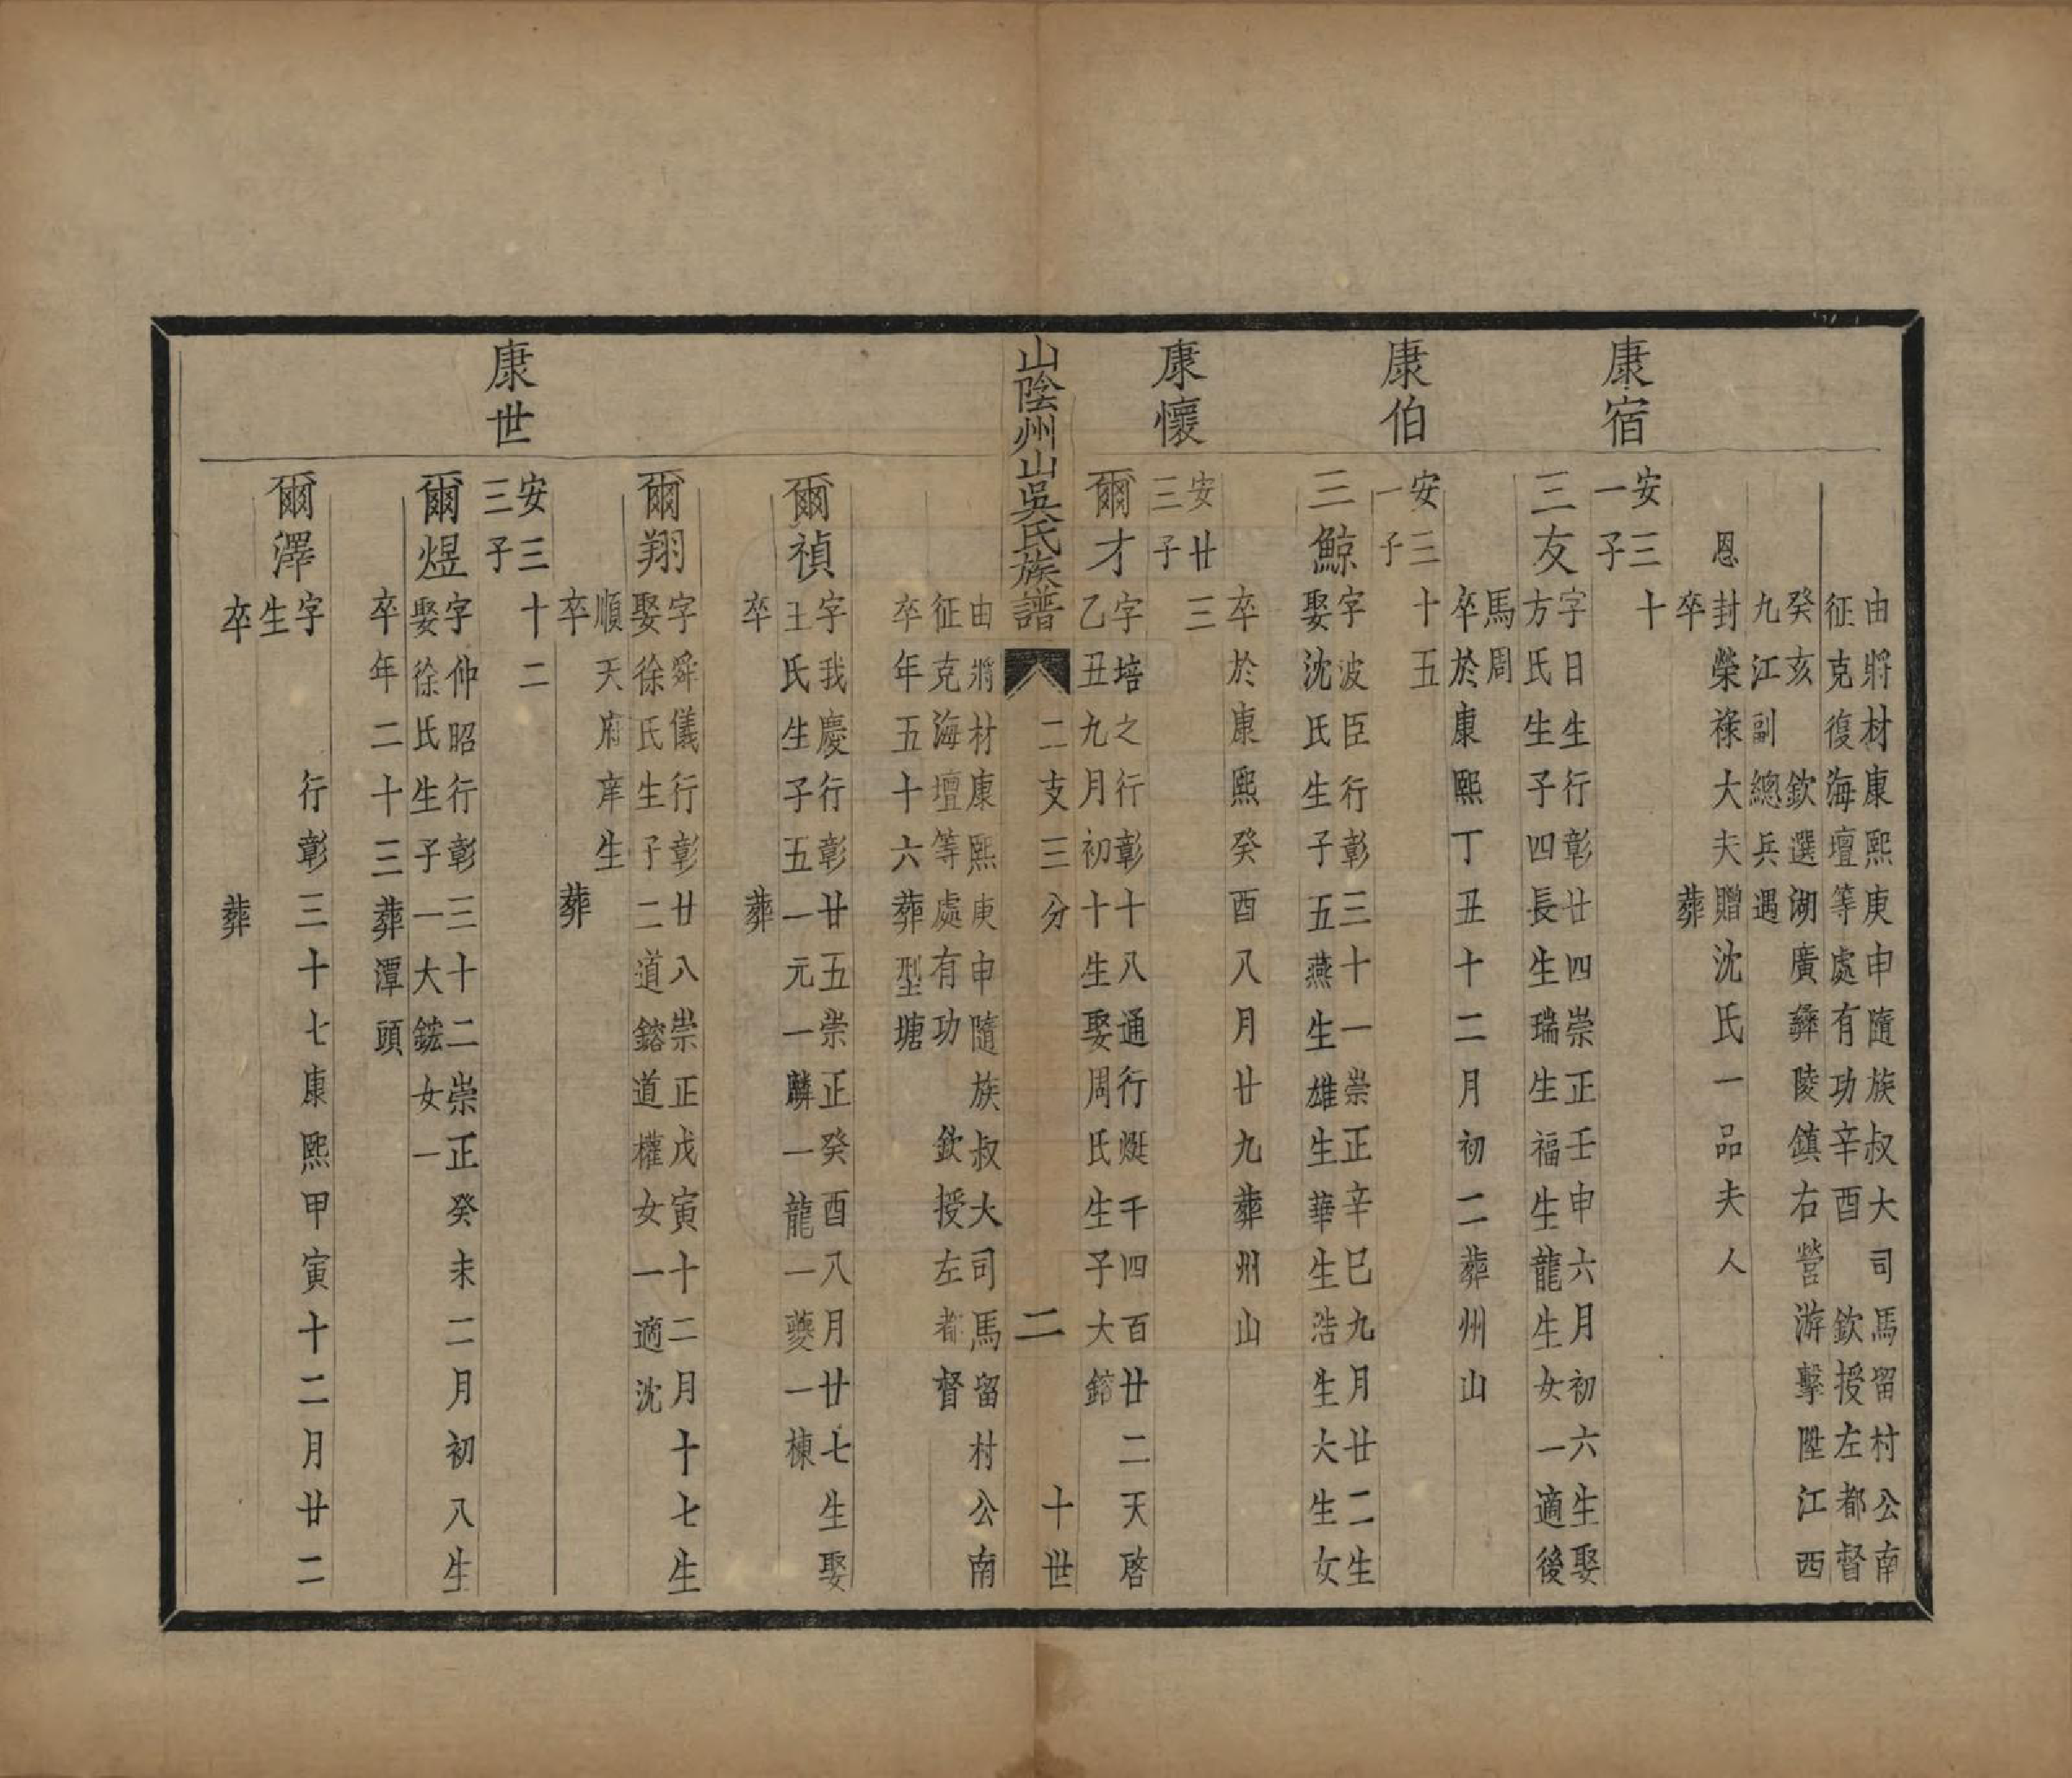 由將材康熙庚申隨族叔大司馬留村公南
征克復海壇等處有功辛酉　欽授左都督
癸亥　欽選湖廣彝陵鎮右營游擊陞江西
九江副總兵遇
恩封榮祿大夫贈沈氏一品夫人
卒　　　　葬
康宿
安三十
一子
三友
字日生行彰廿四崇正壬申六月初六生娶
方氏生子四長生瑞生福生龍生女一適後
馬周
卒於康熙丁丑十二月初二葬州山
康伯
安三十五
一子
三鯨
字波臣行彰三十一崇正辛巳九月廿二生
娶沈氏生子五燕生雄生華生浩生大生女
卒於康熙癸酉八月廿九葬州山
三
康懷
安廿
三子
爾才
字培之行彰十八通行烻千四百廿二天啓
乙丑九月初十生娶周氏生子大鎊
山陰州山吳氏族譜
二支三分　十世
二
由將材康熙庚申隨族叔大司馬留村公南
征克海壇等處有功　欽授左都督
卒年五十六葬型塘
爾禎
字我慶行彰廿五崇正癸酉八月廿七生娶
王氏生子五一元一麟一龍一夔一棟
卒　　　　葬
爾翔
字舜儀行彰廿八崇正戊寅十二月十七生
娶徐氏生子二道鎔道權女一適沈
順天府庠生
卒　　　　葬
康世
安三十二
三子
爾煜
字仲昭行彰三十二崇正癸未二月初八生
娶徐氏生子一大鋐女一
卒年二十三葬潭頭
爾澤
字　　行彰三十七康熙甲寅十二月廿二
生
卒　　　　葬